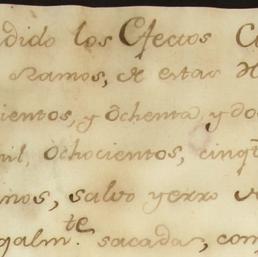 dido los Efectos
Ramos, de estar
ientos, y ochenta, y do
mil, ochocientos, cinq
nos, salvo yerro
galm.te sacada, com